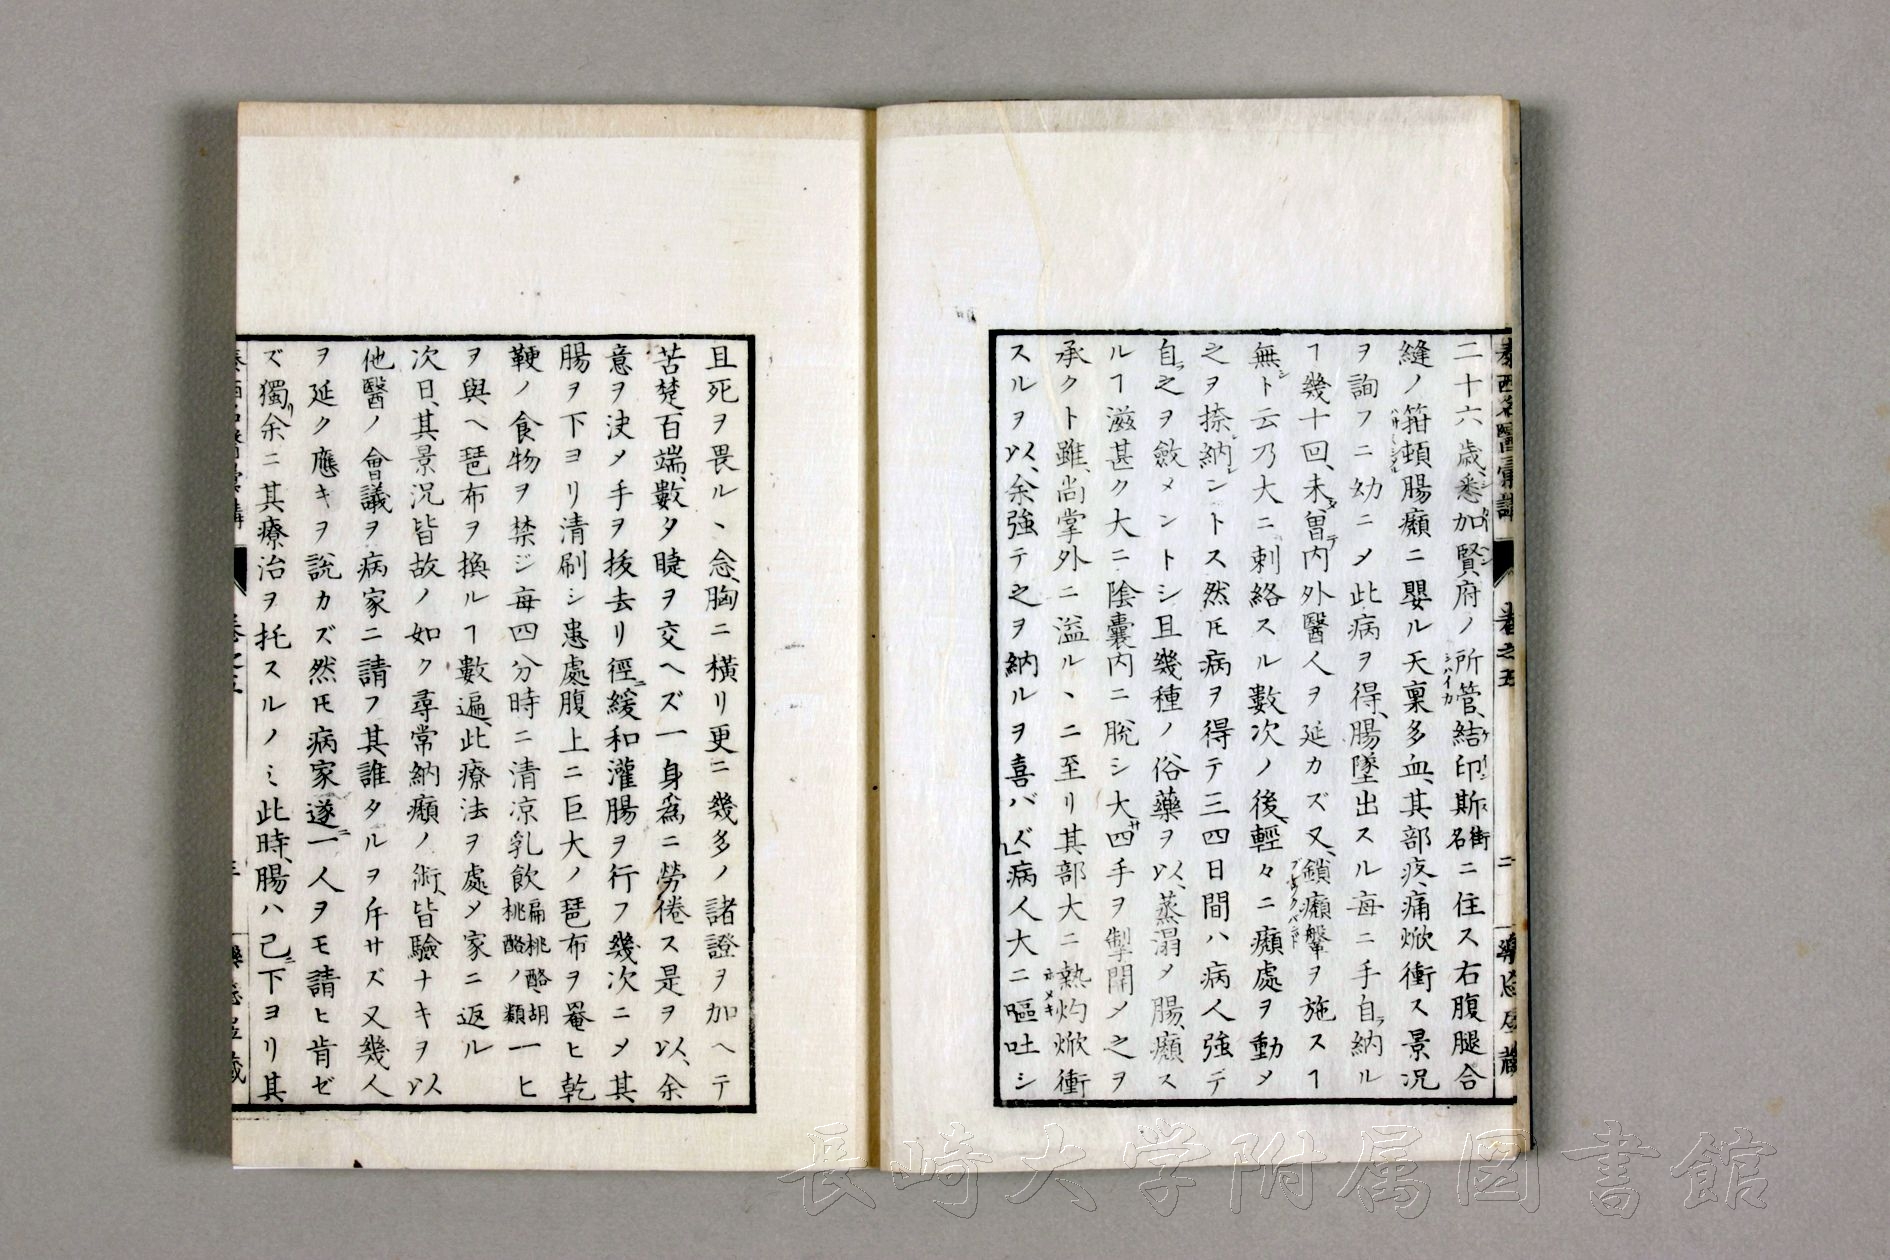 泰西名醫彙講 卷之五 二
二十六歳、悉加賢府ノ所管、結印斯街名ニ住ス右腹腿合
縫ノ箝頓腸癩ニ嬰ル天稟多血、其部疼痛焮衝ス景況
ヲ詢フニ幼ニメ此病ヲ得、腸墜出スル毎ニ手自ラ納ル
ヿ幾十回、未ダ曾テ内外醫人ヲ延カズ又、鎖癩鞶ヲ施スヿ
無シト云乃大ニ刺絡スル數次ノ後、輕々ニ癩處ヲ動メ
之ヲ捺納レントス然𪜈病ヲ得テ三四日間ハ病人強テ
自ラ之ヲ斂メントシ且幾種ノ俗藥ヲ以、蒸溻メ腸、癩ス
ルヿ滋甚ク大ニ陰囊内ニ脱シ大サ四手ヲ掣開メ之ヲ
承クト雖、尚掌外ニ溢ルヽニ至リ其部大ニ熱灼焮衝
スルヲ以、余強テ之ヲ納ルヲ喜バズ病人大ニ嘔吐シ
且死ヲ畏ルヽ念、胸ニ横リ更ニ幾多ノ諸證ヲ加ヘテ
苦楚百端、數夕睫ヲ交ヘズ一身爲ニ勞倦ス是ヲ以、余
意ヲ決メ手ヲ抜去リ徑ニ緩和灌腸ヲ行フ幾次ニメ其
腸ヲ下ヨリ清刷シ患處腹上ニ巨大ノ琶布ヲ罨ヒ乾
鞕ノ食物ヲ禁ジ毎四分時ニ清凉乳飲扁桃酪、胡桃酪ノ類一ヒ
ヲ與ヘ琶布ヲ換ルヿ數遍、此療法ヲ處メ家ニ返ル
次日、其景況皆故ノ如ク尋常納癩ノ術、皆驗ナキヲ以
他醫ノ會議ヲ病家ニ請フ其誰タルヲ斥サズ又幾人
ヲ延ク應キヲ説カズ然𪜈病家遂ニ一人ヲモ請ヒ肯ゼ
ズ獨リ余ニ其療治ヲ托スルノミ此時、腸ハ己ニ下ヨリ其
長崎大学附属図書館